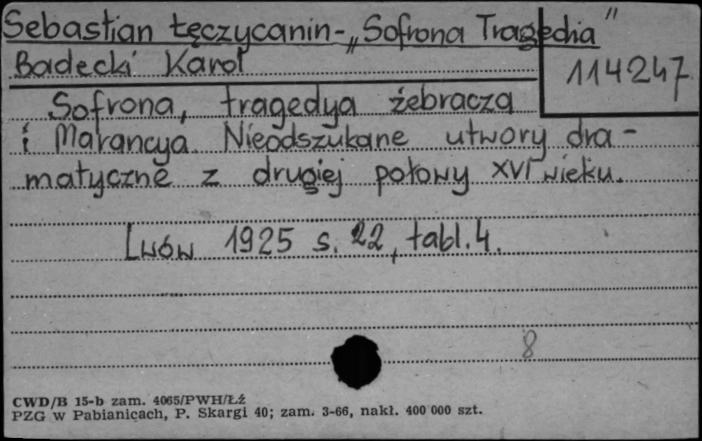 Sebastian Łęczycanin - „Sofrona Tragedia"
Badecki Karol
114247
Sofrona, tragedya żebracza
i Marancya. Nieodszukane utwory dra-
matyczne z drugiej połowy XVI wieku.
Lwów 1925 s. 22, tabl. 4.
8
CWD/B 15-b zam. 4065/PWH/Łź
PZG w Pabianicach, P. Skargi 40; zam. 3-66, nakł. 400 000 szt.